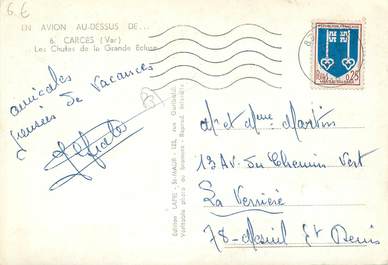 6.€
EN AVION AU-DESSUS DE...
6. CARCES (Var)
Les Chutes de la Grande Ecluse
amicales
pensées de vacances
Edition LAPIE - St-MAUR - 128, rue Garibaldi
Véritable photo au bromure - Reprod. Interdite
REPUBLIQUE FRANCAISE
0,25
Mr et Mme Martin
13 Av. du Chemin Vert
La Verrière
78 - Mesnil St Denis